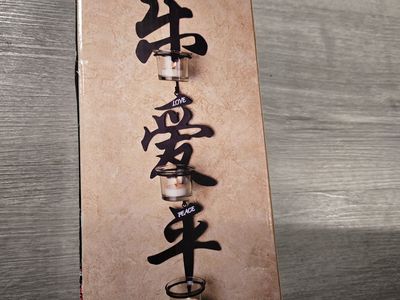 LOVE
爱
PEACE
平